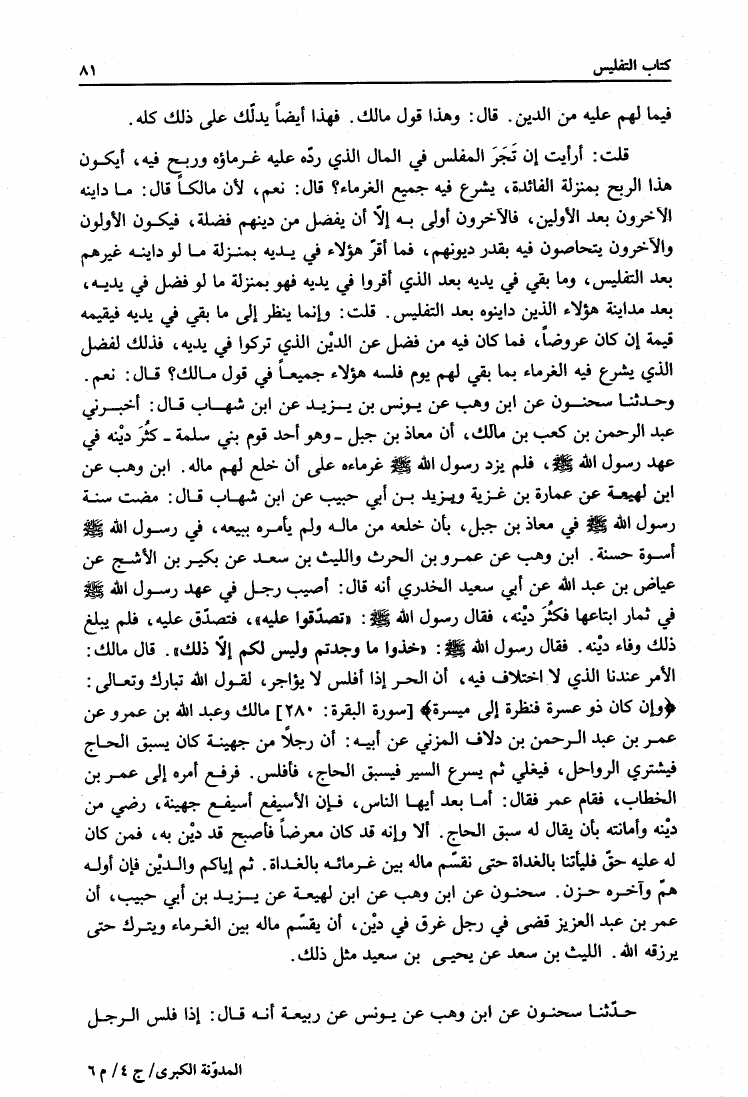 كتاب التفليس ٨١
فيما لهم عليه من الدين. قال: وهذا قول مالك. فهذا أيضاً يدلّك على ذلك كله.
قلت: أرأيت إن تَجَرَ المفلس في المال الذي ردّه عليه غرماؤه وربح فيه، أيكون
هذا الربح بمنزلة الفائدة، يشرع فيه جميع الغرماء؟ قال: نعم، لأن مالكاً قال: ما داينه
الآخرون بعد الأولين، فالآخرون أولى به إلاّ أن يفضل من دينهم فضلة، فيكون الأولون
والآخرون يتحاصون فيه بقدر ديونهم، فما أقرّ هؤلاء في يديه بمنزلة ما لو داينه غيرهم
بعد التفليس، وما بقي في يديه بعد الذي أقروا في يديه فهو بمنزلة ما لو فضل في يديه،
بعد مداينة هؤلاء الذين داينوه بعد التفليس. قلت: وإنما ينظر إلى ما بقي في يديه فيقيمه
قيمة إن كان عروضاً، فما كان فيه من فضل عن الديْن الذي تركوا في يديه، فذلك لفضل
الذي يشرع فيه الغرماء بما بقي لهم يوم فلسه هؤلاء جميعاً في قول مالك؟ قال: نعم.
وحدثنا سحنون عن ابن وهب عن يونس بن يزيد عن ابن شهاب قال: أخبرني
عبد الرحمن بن كعب بن مالك، أن معاذ بن جبل ـ وهو أحد قوم بني سلمة ـ كثُرَ ديْنه في
عهد رسول الله ﷺ، فلم يزد رسول الله ﷺ غرماءه على أن خلع لهم ماله. ابن وهب عن
ابن لهيعة عن عمارة بن غزية ويزيد بن أبي حبيب عن ابن شهاب قال: مضت سنة
رسول الله ﷺ في معاذ بن جبل، بأن خلعه من ماله ولم يأمره ببيعه، في رسول الله ﷺ
أسوة حسنة. ابن وهب عن عمرو بن الحرث والليث بن سعد عن بكير بن الأشج عن
عياض بن عبد الله عن أبي سعيد الخدري أنه قال: أصيب رجل في عهد رسول الله ﷺ
في ثمار ابتاعها فكثُرَ ديْنه، فقال رسول الله ﷺ: «تصدّقوا عليه»، فتصدّق عليه، فلم يبلغ
ذلك وفاء ديْنه. فقال رسول الله ﷺ: «خذوا ما وجدتم وليس لكم إلاّ ذلك». قال مالك:
الأمر عندنا الذي لا اختلاف فيه، أن الحر إذا أفلس لا يؤاجر، لقول الله تبارك وتعالى:
﴿وإن كان ذو عسرة فنظرة إلى ميسرة﴾ [سورة البقرة: ٢٨٠] مالك وعبد الله بن عمرو عن
عمر بن عبد الرحمن بن دلاف المزني عن أبيه: أن رجلاً من جهينة كان يسبق الحاج
فيشتري الرواحل، فيغلي ثم يسرع السير فيسبق الحاج، فأفلس. فرفع أمره إلى عمر بن
الخطاب، فقام عمر فقال: أما بعد أيها الناس، فإن الأسيفع أسيفع جهينة، رضي من
ديْنه وأمانته بأن يقال له سبق الحاج. ألا وإنه قد كان معرضاً فأصبح قد ديْن به، فمن كان
له عليه حقّ فليأتنا بالغداة حتى نقسّم ماله بين غرمائه بالغداة. ثم إياكم والديْن فإن أوله
همّ وآخره حزن. سحنون عن ابن وهب عن ابن لهيعة عن يزيد بن أبي حبيب، أن
عمر بن عبد العزيز قضى في رجل غرق في ديْن، أن يقسّم ماله بين الغرماء ويترك حتى
يرزقه الله. الليث بن سعد عن يحيى بن سعيد مثل ذلك.
حدّثنا سحنون عن ابن وهب عن يونس عن ربيعة أنه قال: إذا فلس الرجل
المدوّنة الكبرى/ ج ٤/ م ٦